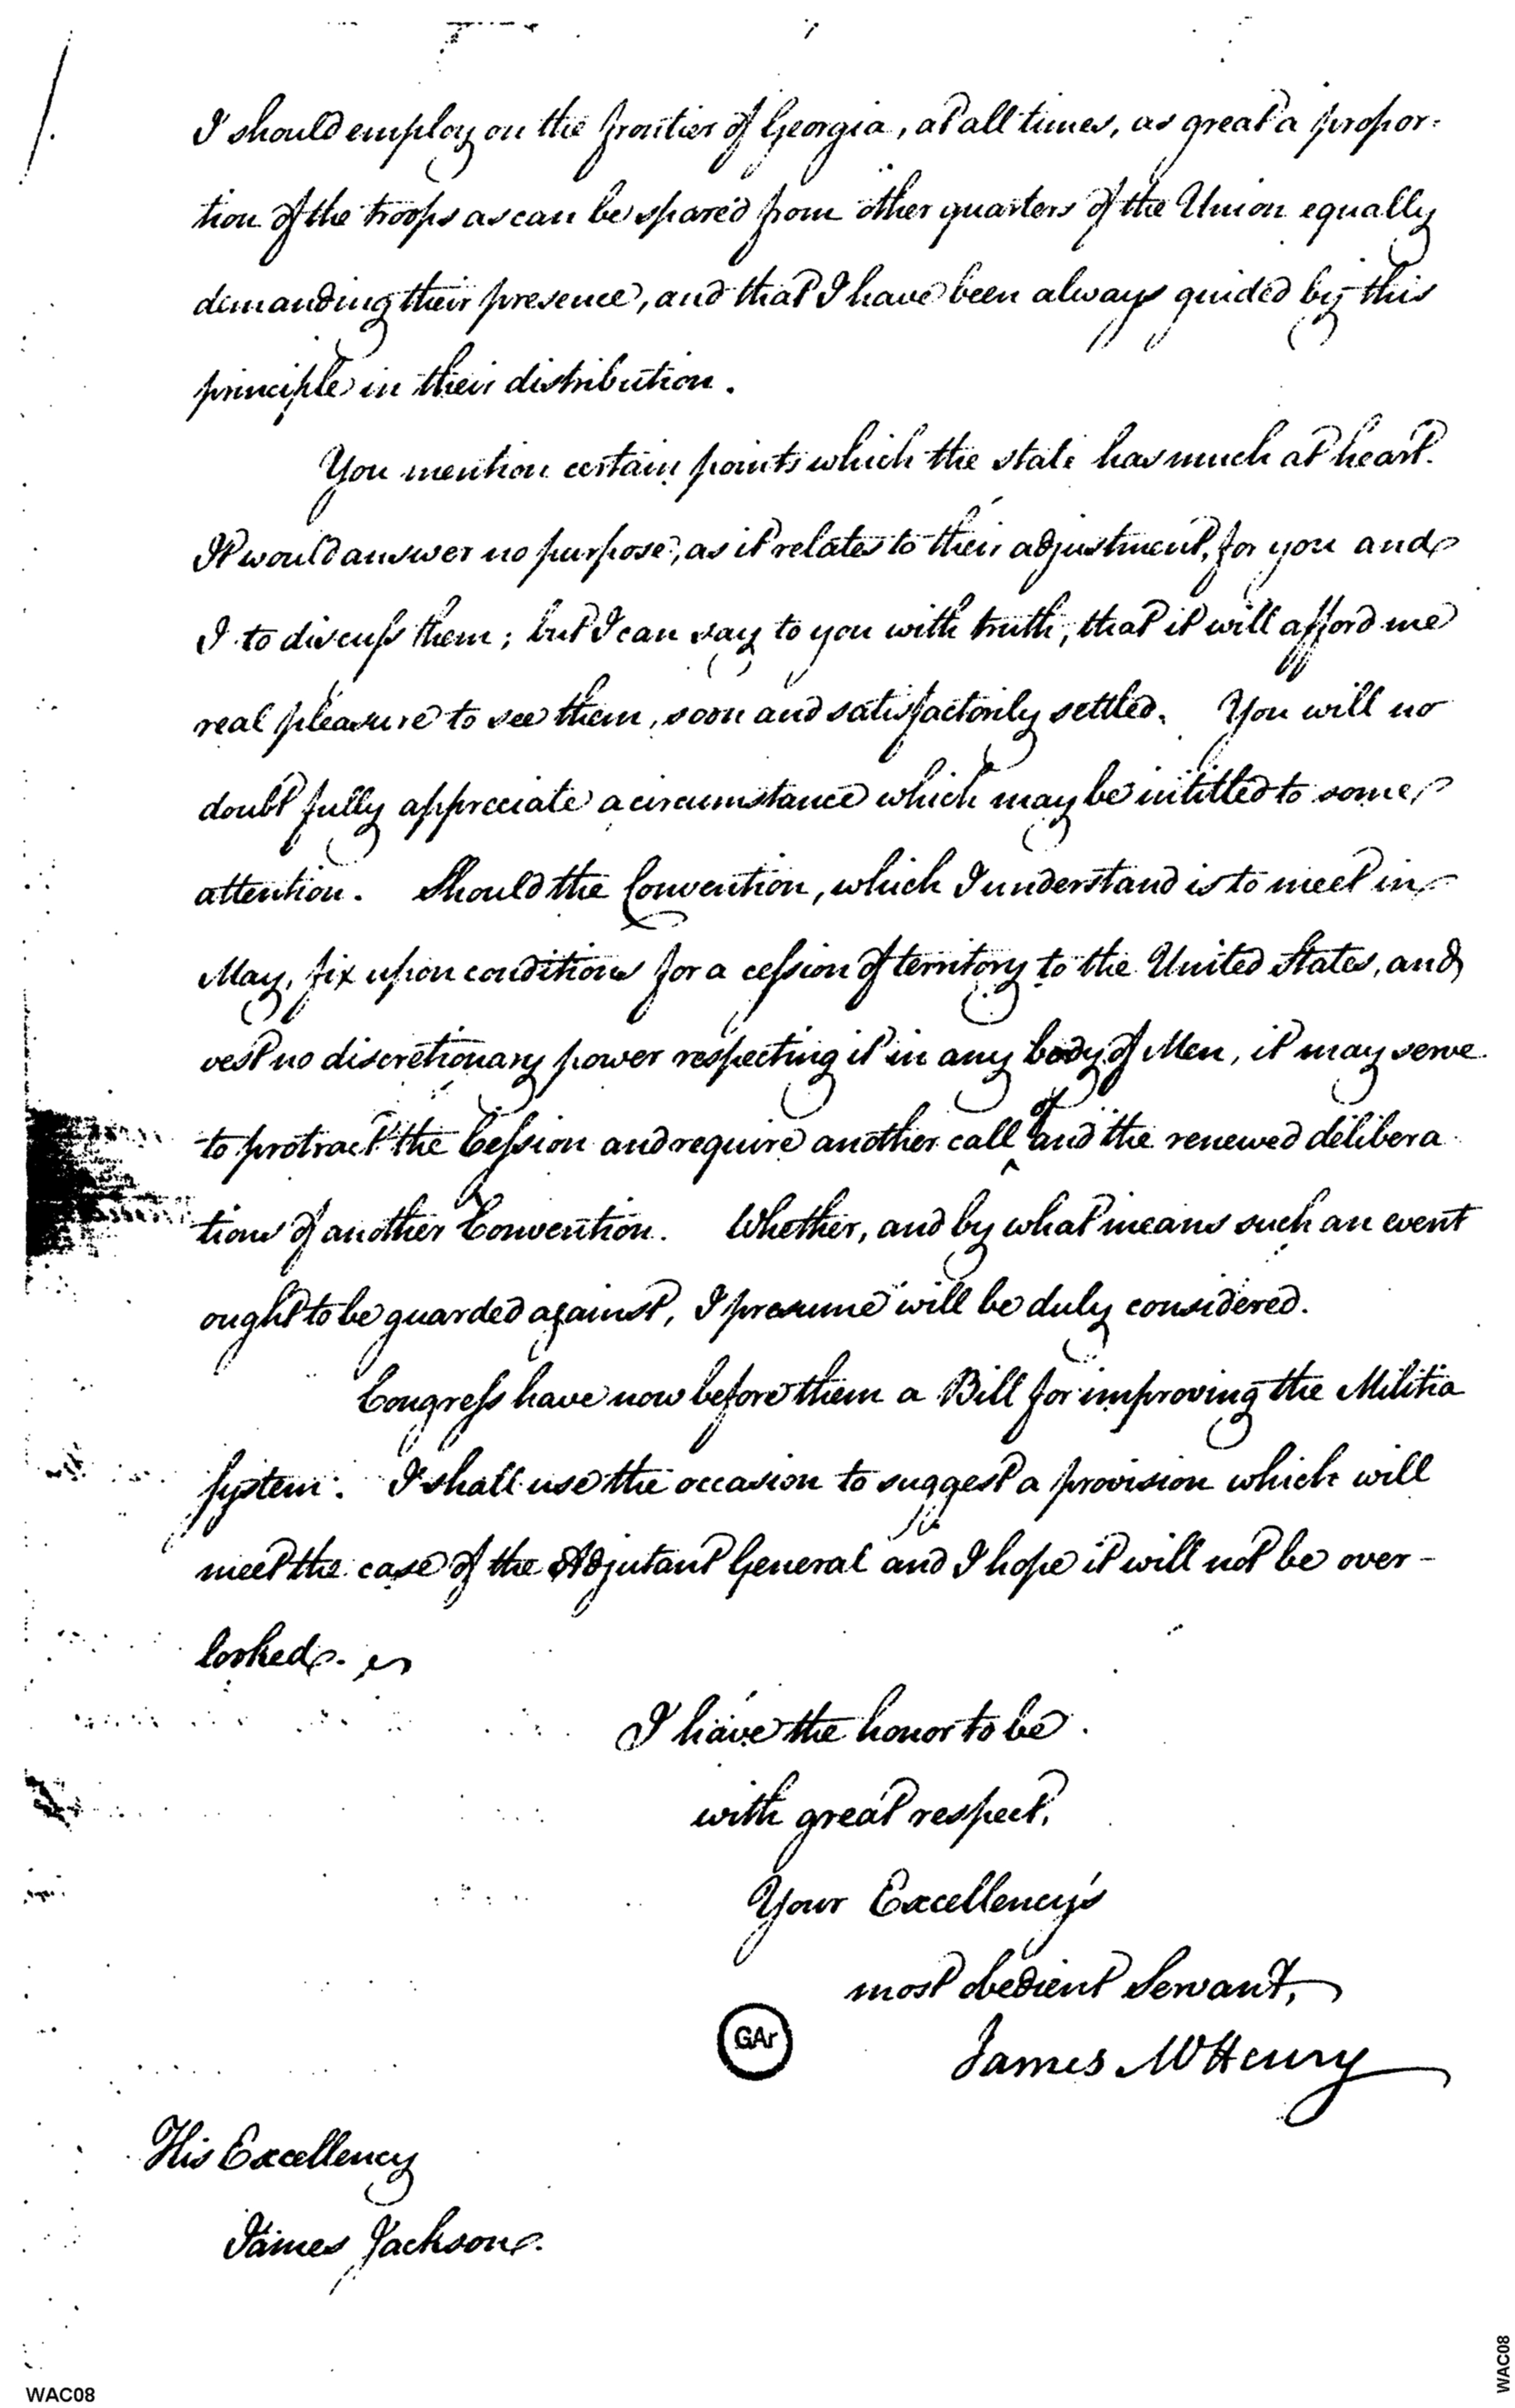 I should employ on the frontier of Georgia, at all times, as great a propor-
tion of the troops as can be spared from other quarters of the Union equally
demanding their presence, and that I have been always guided by this
principle in their distribution.
You mention certain points which the state has much at heart.
It would answer no purpose, as it relates to their adjustment, for you and
I to discuss them; but I can say to you with truth, that it will afford me
real pleasure to see them, soon and satisfactorily settled. You will no
doubt fully appreciate a circumstance which may be intitled to some
attention. Should the Convention, which I understand is to meet in
May, fix upon conditions for a cession of territory to the United States, and
vest no discretionary power respecting it in any body of Men, it may serve
to protract the Cession and require another call of and the renewed delibera
tions of another Convention. Whether, and by what means such an event
ought to be guarded against, I presume will be duly considered.
Congress have now before them a Bill for improving the Militia
System. I shall use the occasion to suggest a provision which will
meet the case of the Adjutant General and I hope it will not be over-
looked.
I have the honor to be
with great respect,
Your Excellency's
most obedient Servant,
James McHenry
GAr
His Excellency
James Jackson.
WAC08
WAC08